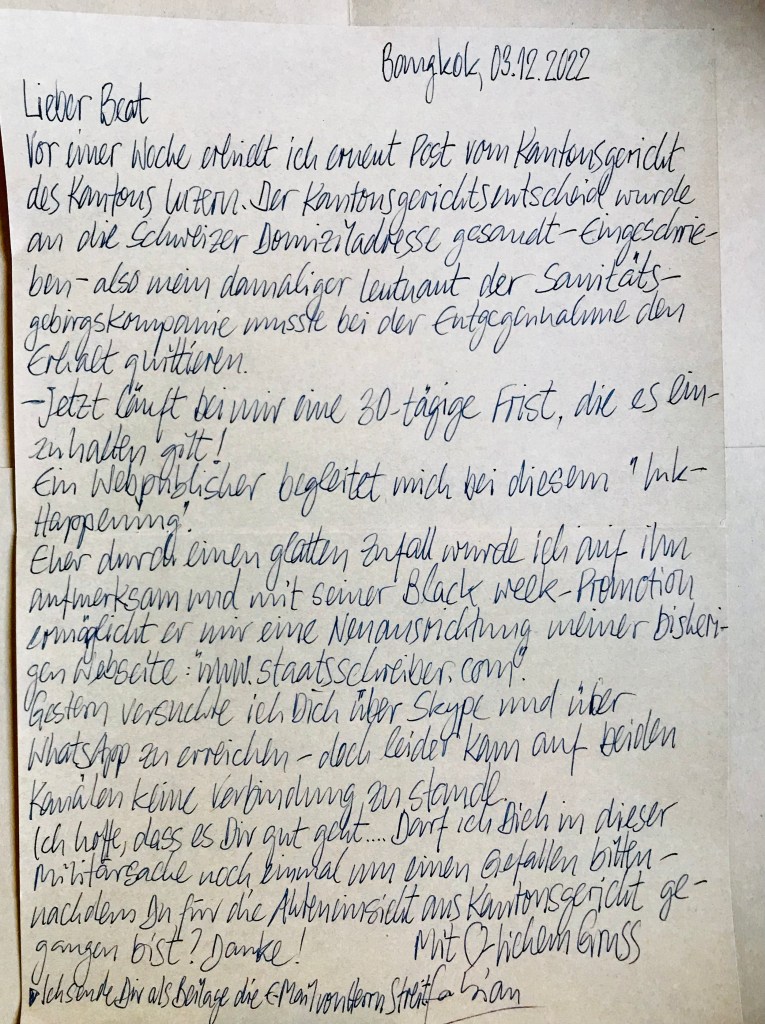 Bangkok, 03.12.2022
Lieber Beat
Vor einer Woche erhielt ich erneut Post vom Kantonsgericht
des Kantons Luzern. Der Kantonsgerichtsentscheid wurde
an die Schweizer Domiziladresse gesandt - Eingeschrie-
ben - also mein damaliger Leutnant der Sanitäts-
gebirgskompanie musste bei der Entgegennahme den
Erhalt quittieren.
- Jetzt läuft bei mir eine 30-tägige Frist, die es ein-
zuhalten gilt!
Ein Webpublisher begleitet mich bei diesem "Ink-
Happening".
Eher durch einen glatten Zufall wurde ich auf ihn
aufmerksam und mit seiner Black week-Promotion
ermöglicht er mir eine Neuausrichtung meiner bisheri-
gen Webseite: "www.staatsschreiber.com".
Gestern versuchte ich Dich über Skype und über
WhatsApp zu erreichen - doch leider kam auf beiden
Kanälen keine Verbindung zu stande.
Ich hoffe, dass es Dir gut geht.... Darf ich Dich in dieser
Militärsache noch einmal um einen Gefallen bitten -
nachdem Du für die Akteneinsicht ans Kantonsgericht ge-
gangen bist? Danke! Mit ♡lichem Gruss
Ich sende Dir als Beilage die E-Mail von Herrn Streit Fabian